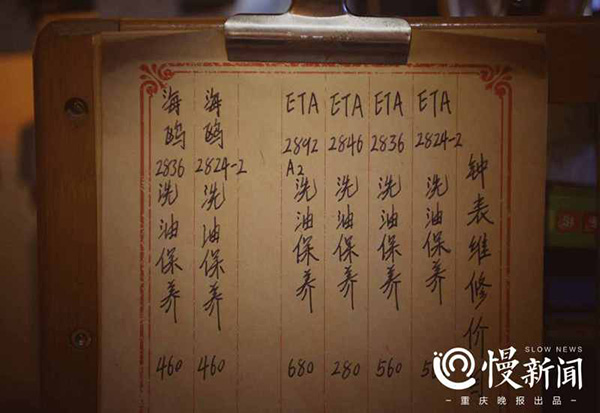 钟表维修价
ETA 2824-2 洗油保养 5
ETA 2836 洗油保养 560
ETA 2846 洗油保养 280
ETA 2892 A2 洗油保养 680
海鸥 2824-2 洗油保养 460
海鸥 2836 洗油保养 460
SLOW NEWS
慢新闻
重庆晚报出品